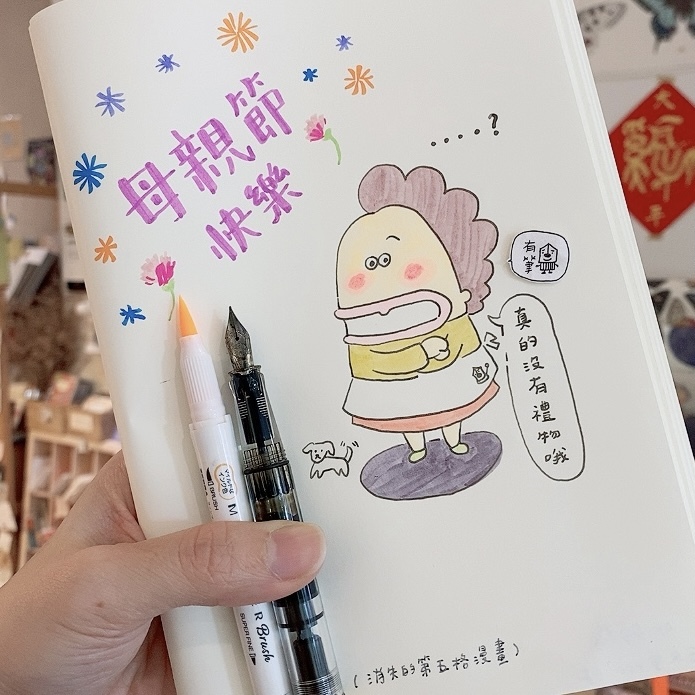 母親節
快樂
.....?
有
筆
真的沒有禮物哦
(消失的第五格漫畫)
M
BRUSH
R Brush
SUPER FINE
大
平